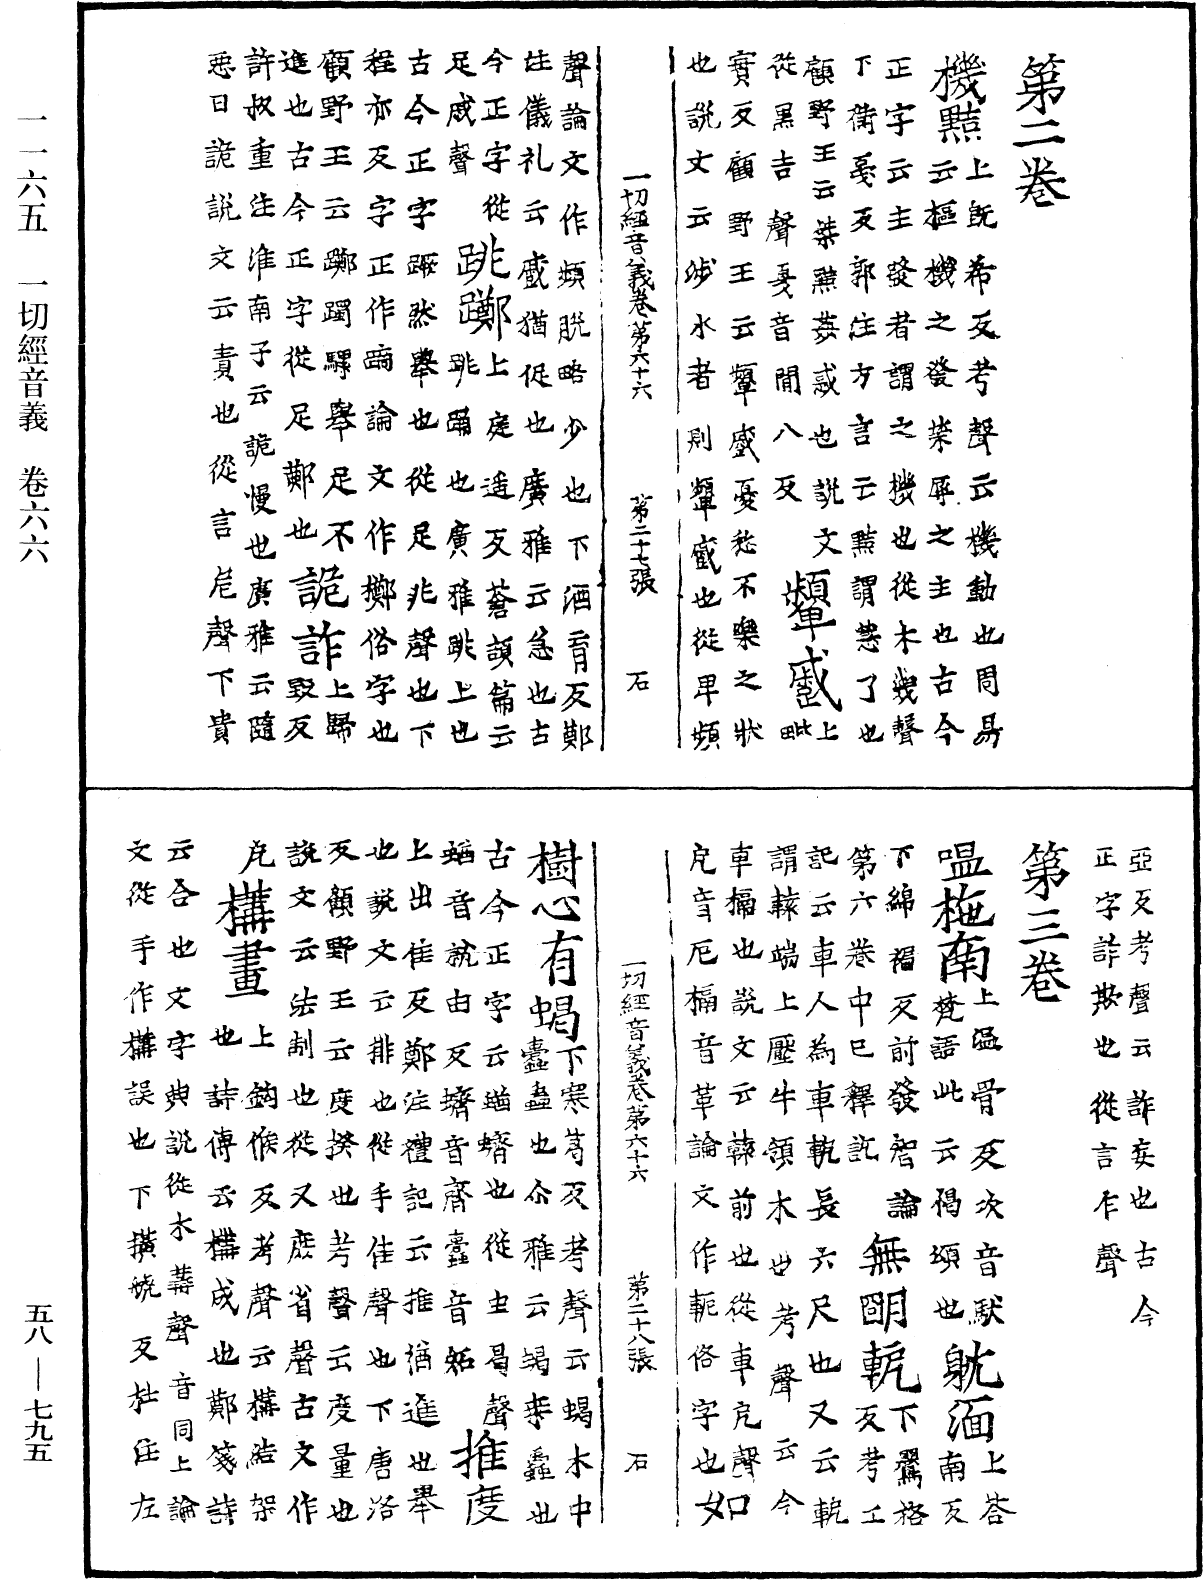 一一六五　一切經音義　卷六六
五八—七九五
第二卷
機黠上既希反考聲云機動也周易
云樞機之發榮辱之主也古今
正字云主發者謂之機也從木幾聲
下衡戛反郭注方言云黠謂慧了也
顧野王云桀黠姦惑也說文
從黑吉聲戛音閒八反
顰蹙上毗
賓反顧野王云顰蹙憂愁不樂之狀
也說文云涉水者則顰蹙也從卑頻
一切經音義卷第六十六　第二十七張　石
聲論文作頻脫略少也下酒育反鄭
注儀礼云蹙猶促也廣雅云急也古
今正字從
足戚聲
跳躑上庭遥反蒼頡篇云
跳踊也廣雅跳上也
古今正字踊然舉也從足兆聲也下
程亦反字正作蹢論文作擲俗字也
顧野王云躑躅驟舉足不
進也古今正字從足鄭也
詭詐上歸毀反
許叔重注淮南子云詭慢也廣雅云隨
惡曰詭說文云責也從言危聲下貴
亞反考聲云詐妄也古今
正字詐欺也從言乍聲
第三卷
嗢柂南上温骨反次音馱
梵語此云偈頌也
躭湎上荅南反
下綿褊反前發智論
第六卷中已釋訖
無明軛下鸎格反考工
記云車人為車軛長六尺也又云軛
謂轅端上壓牛領木也考聲云今
車槅也說文云轅前也從車戹聲
戹音厄槅音革論文作軶俗字也如
一切經音義卷第六十六　第二十八張　石
樹心有蝎下寒葛反考聲云蝎木中
蠹蟲也尒雅云蝎桑蠹也
古今正字云蝤蠐也從虫曷聲
蝤音就由反蠐音齊蠹音妬
推度
上出佳反鄭注禮記云推猶進也舉
也說文云排也從手隹聲也下唐洛
反顧野王云度揆也考聲云度量也
說文云法制也從又庶省聲古文作
㡯
構畫上鈎候反考聲云構結架
也詩傳云構成也鄭箋詩
云合也文字典說從木冓聲音同上論
文從手作搆誤也下橫虢反杜注左